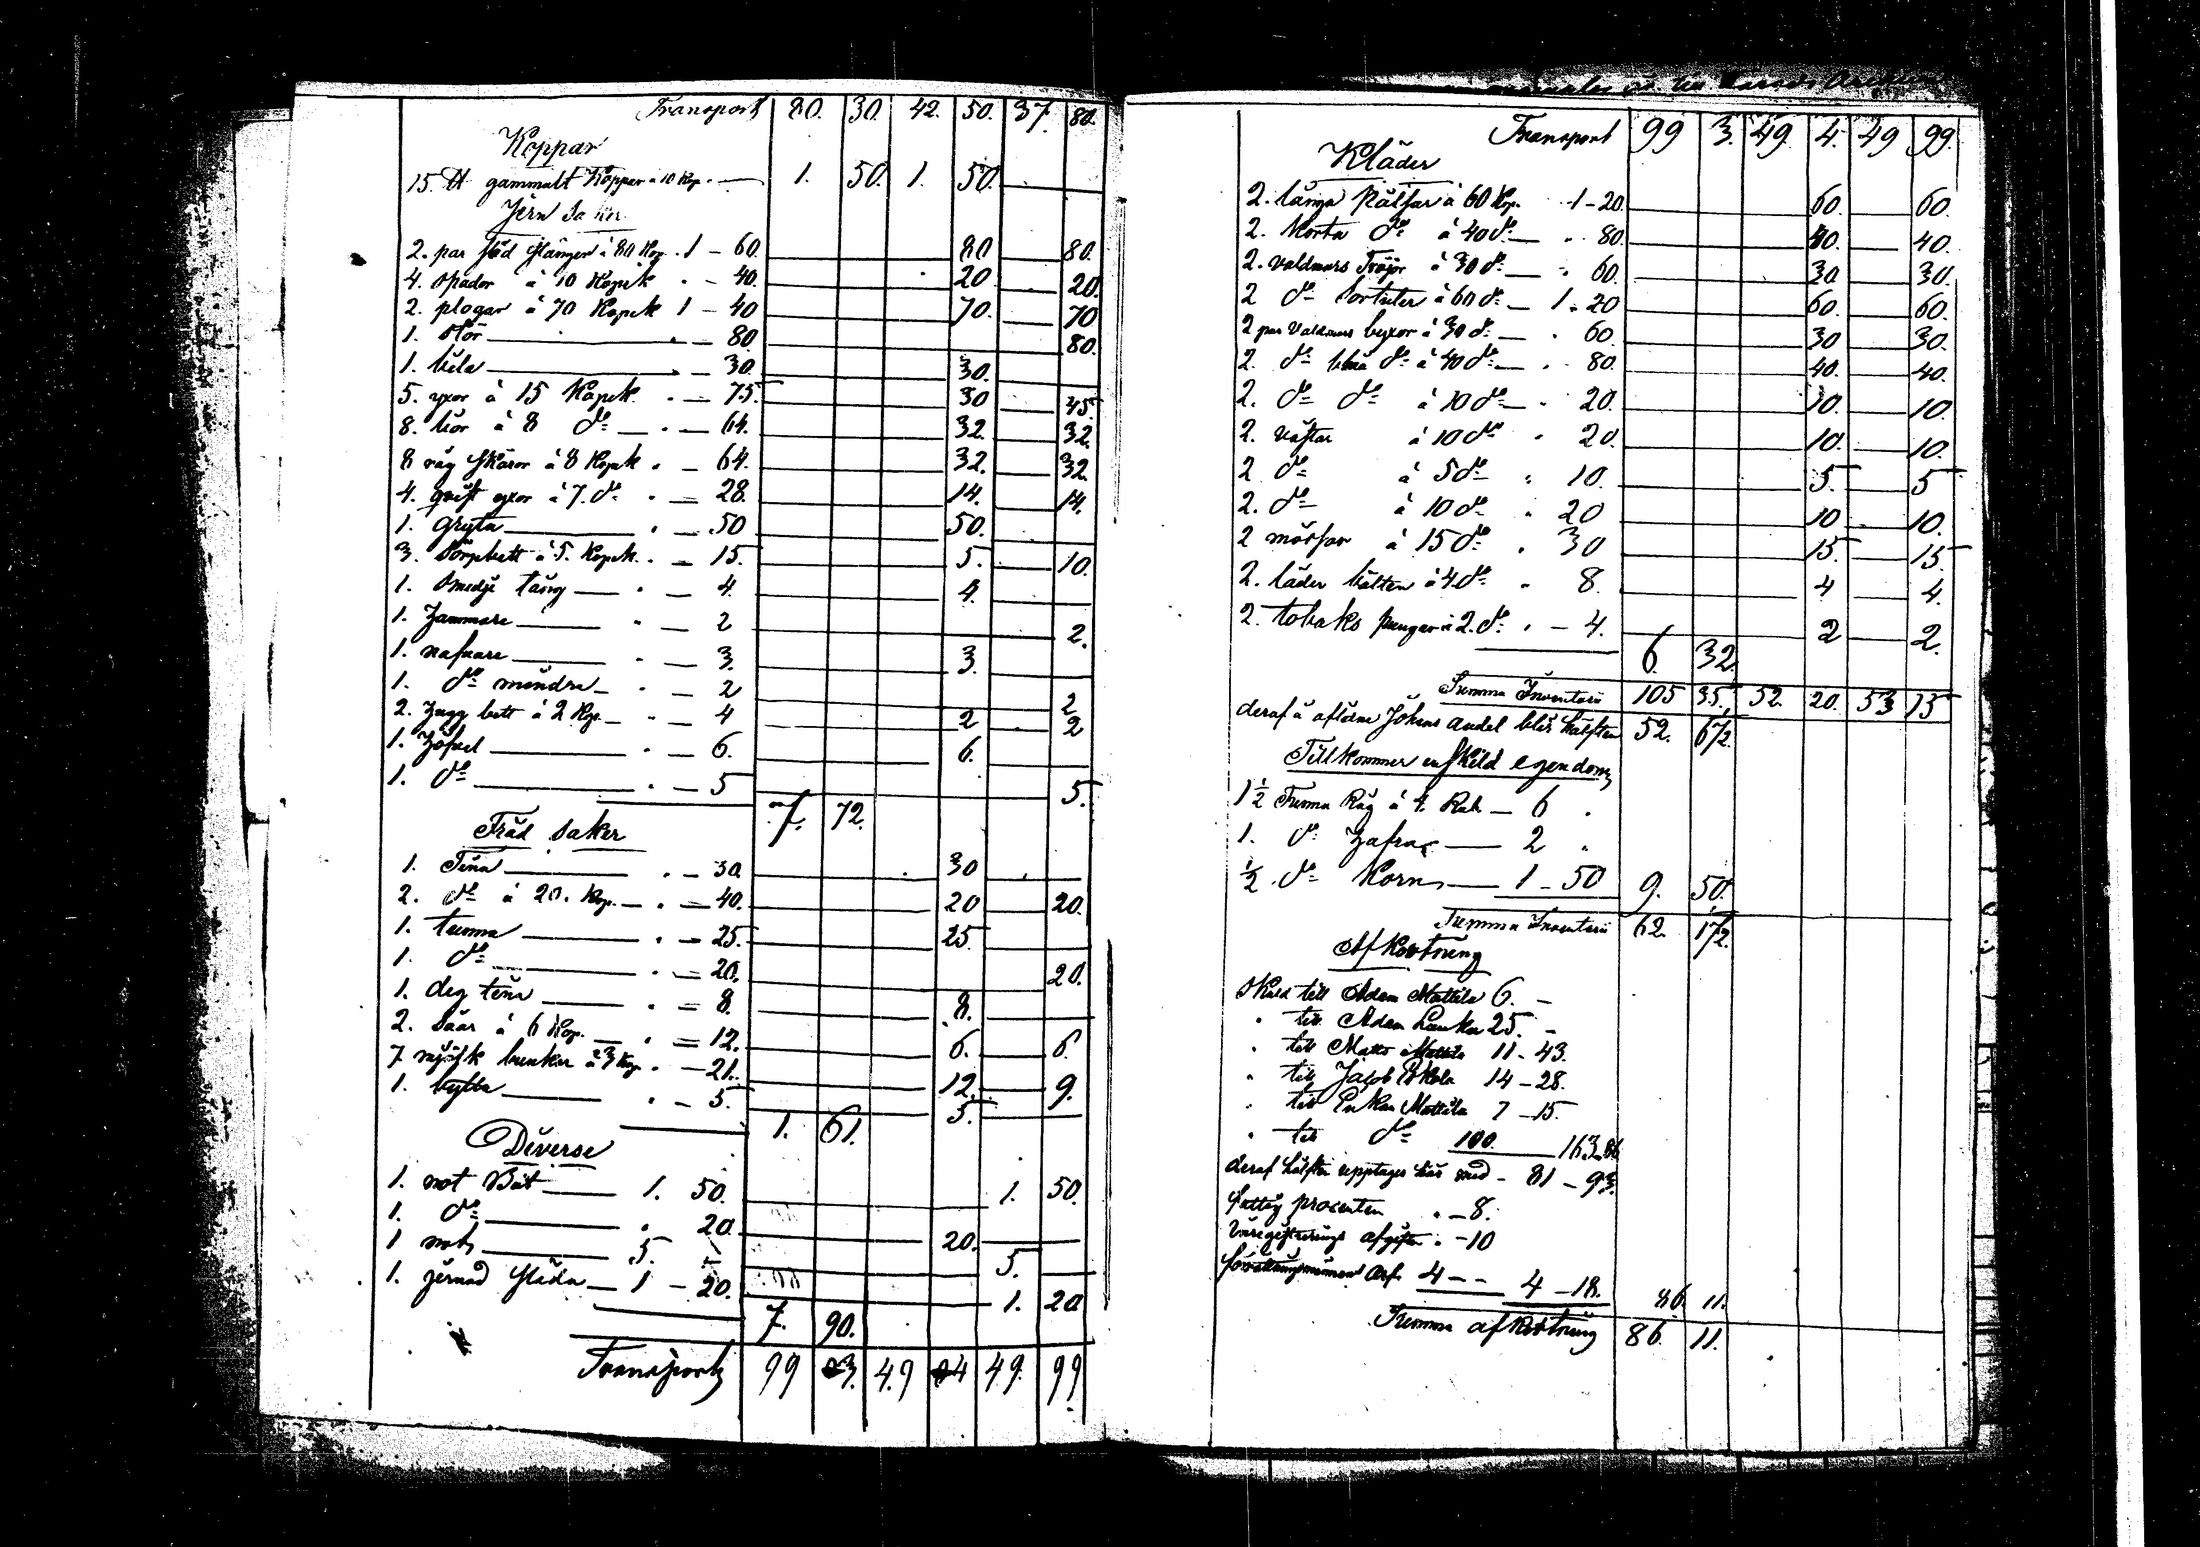 Transport 80. 30. 42. 50. 37. 80.
Koppar
15. ℔ gammalt Koppar a 10 Kop. — 1. 50. 1. 50.
Jern Saker
2. par Släd stänger à 80 Kop. 1 – 60. 80 80.
4. spador à 10 Kopek . – 40. 20 20.
2. plogar à 70 Kopek 1 – 40 70. 70
1. Stör . — 80 80.
1. bila . — 30. 30.
5. yxor à 15 Kopek . — 75. 30 45.
8. liör à 8 do . — 64. 32. 32.
8 råg skäror à 8 Kopek . — 64. 32. 32.
4. qvist yxor à 7. do . — 28. 14. 14.
1. Gryta . — 50 50.
3. Törpbett à 5. Kopek . — 15. 5. 10.
1. Smedje tång . — 4. 4.
1. Hammare . — 2 2.
1. nafvare . — 3. 3.
1. do mindre . — 2 2
2. Hugg bett à 2 Kop. . — 4 2 2
1. Höfvel . — 6. 6.
1. do . — 5 5.
7. 72.
Träd saker
1. Tina . — 30. 30
2. do à 20. Kop. . — 40. 20 20.
1. tunna . — 25. 25.
1. do — 20. 20.
1. deg tina — 8. 8.
2. Såar à 6 Kop. — 12. 6. 6.
7 mjölk bunkar à 3 Kop. . — 21. 12. 9.
1. bytta . — 5. 5.
1. 61.
Diverse
1. not Båt 1. 50. 1. 50.
1. do . 20. 20.
1 not 5. 5.
1. jernad släda 1 – 20. 1. 20
7. 90.
Transport 99 3. 49 4 49. 99
Transport 99 3. 49 4. 49 99.
Kläder
2. långa Pälsar à 60 Kop. 1 – 20. 60. 60.
2. Korta do à 40 do . 80. 40. 40.
2. valdmars Tröjor à 30 do . 60. 30 30.
2 do Sortuter à 60 do 1 – 20 60. 60.
2 par Valdmars byxor à 30 do . 60. 30 30.
2. do blåa do à 40 do . 80. 40. 40.
2. do do à 10 do . 20. 10. 10.
2. västar à 10 do . 20. 10. 10.
2 do à 5 do . 10. 5. 5
2. do à 10 do . 20 10 10.
2 mössor à 15 do . 30 15 15.
2. läder bälten à 4 do . 8. 4 4.
2. tobaks pungar à 2. do . – 4. 2 2.
6. 32.
Summa Inventarii 105 35. 52. 20. 53 15
deraf å aflidne Johans andel blir hälften 52. 67½.
Tillkommer enskild egendom
1½ Tunna Råg à 4. Rub. — 6 .
1. do Hafra — 2 „
½. do Korn — 1 – 50 9. 50.
Summa Inventarii 62. 17½.
Afkortning
Skuld till Adam Mattila 6. –
. till Adam Lauka 25. –
. till Matts Mattila 11 – 43.
. till Jacob 14 – 28.
. till Enkan Mattila 7 – 15.
. till do 100. 163. 86
deraf hälften upptages här med – 81 – 93.
fattig procenten . – 8.
Inregistrerings afgiften . – 10
Arf. 4 – – 4 – 18. 86. 11.
Summa afkortning 86. 11.